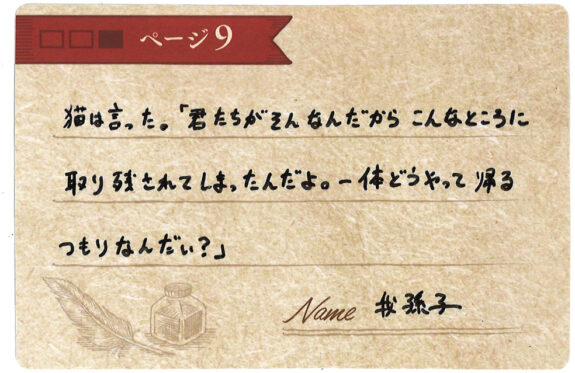 ページ9
猫は言った。「君たちがそんなんだから こんなところに
取り残されてしまったんだよ。一体どうやって帰る
つもりなんだい?」
Name 我孫子